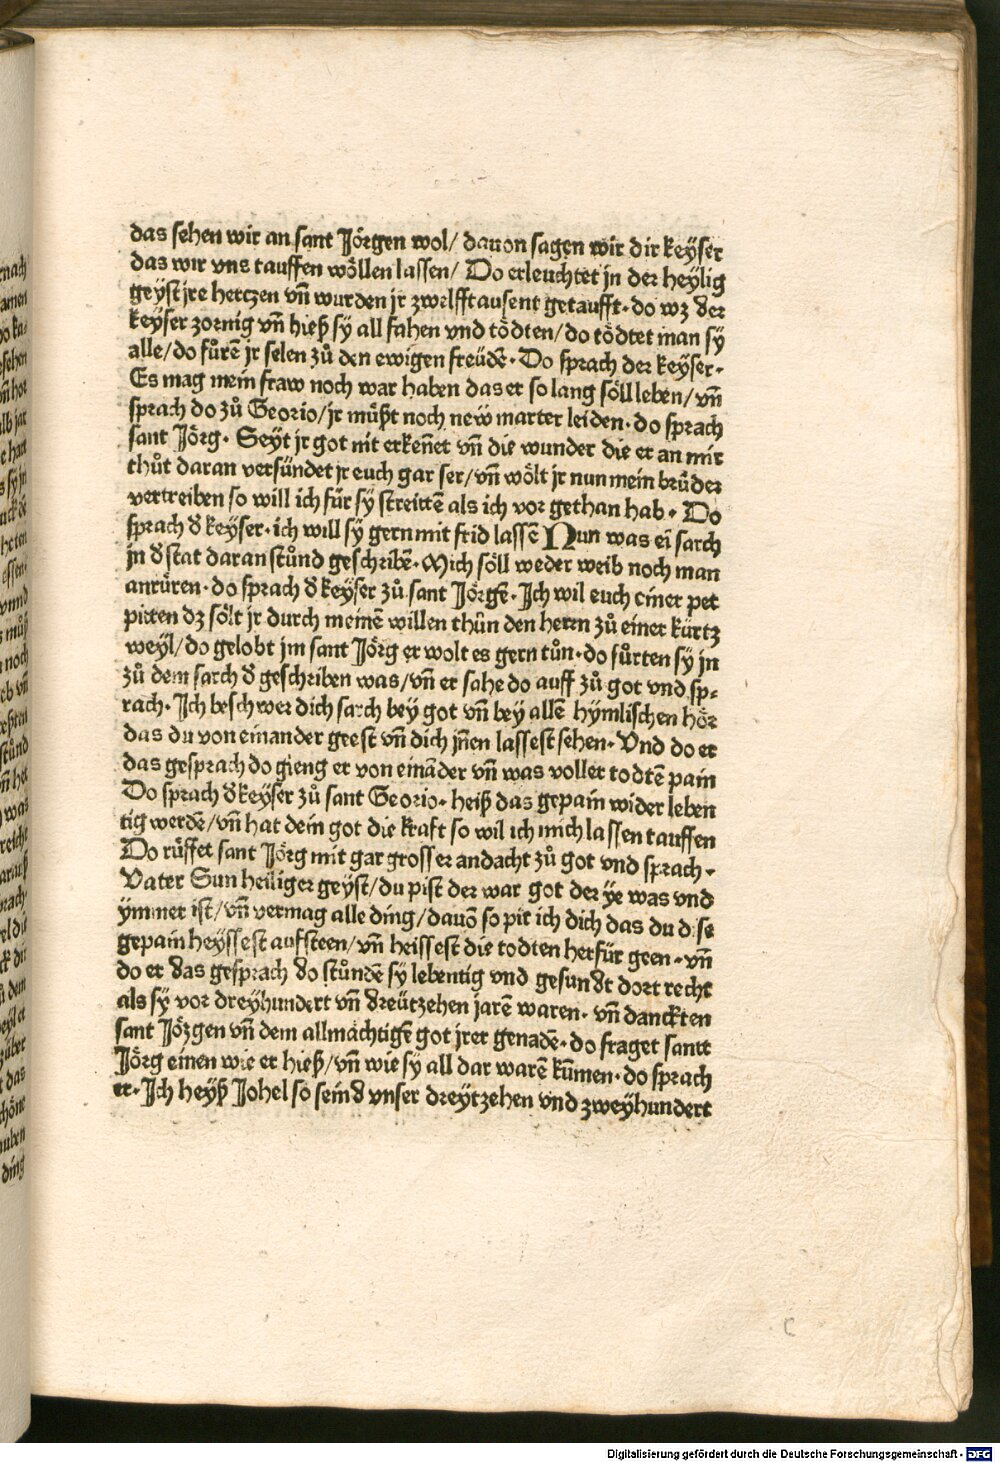 das sehen wir an sant Jörgen wol/ dauon sagen wir dir keyser
das wir vns tauffen wöllen lassen/ Do erleuchtet jn der heylig
geyst jre hertzen vn̄ wurden jr zwelfftausent getaufft· do wz der
keyser zornig vn̄ hieß sy all fahen vnd tödten/ do tödtet man sy
alle/ do fůrē jr selen zů den ewigen freüdē· Do sprach der keyser·
Es mag mein fraw noch war haben das er so lang söll leben/ vn̄
sprach do zů Georio/ jr müßt noch new̋ marter leiden· do sprach
sant Jörg· Seyt jr got nit erken̄et vn̄ die wunder die er an mir
thůt daran versündet jr euch gar ser/ vn̄ wölt jr nun mein brůder
vertreiben so will ich für sy streittē als ich vor gethan hab· Do
sprach d̕ keyser· ich will sy gern mit frid lassē Nun was ei͂ sarch
jn d̕ stat daran stůnd geschribē· Mich söll weder weib noch man
anrüren· do sprach d̕ keyser zů sant Jörgē· Ich wil euch einer pet
pitten dz sölt jr durch meinē willen thůn den herrn zů einer kürtz
weyl/ do gelobt jm sant Jörg er wolt es gern tůn· do fůrten sy jn
zů dem sarch d̕ geschriben was/ vn̄ er sahe do auff zů got vnd sp⸗
rach· Ich beschwer dich sarch bey got vn̄ bey allē hymlischen hör
das du von einander geest vn̄ dich jn̄en lassest sehen· Vnd do er
das gesprach do gieng er von eināder vn̄ was voller todtē pain
Do sprach d̕ keyser zů sant Georio· heiß das gepain wider leben
tig werdē/ vn̄ hat dein got die kraft so wil ich mich lassen tauffen
Do růffet sant Jörg mit gar grosser andacht zů got vnd sprach·
Vater Sun heiliger geyst/ du pist der war got der ye was vnd
ymmer ist/ vn̄ vermag alle ding/ dauō so pit ich dich das du dise
gepain heyssest aufsteen/ vn̄ heissest die todten herfür geen· vn̄
do er das gesprach do stůndē sy lebentig vnd gesundt dort recht
als sy vor dreyhundert vn̄ dreützehen jarē waren· vn̄ danckten
sant Jözgen vn̄ dem allmächtigē got jrer genadē· do fraget sant
Jörg einen wie er hieß/ vn̄ wie sy all dar warē kūmen· do sprach
er· Ich heyß Johel so seind vnser dreytzehen vnd zweyhundert
C
Digitalisierung gefördert durch die Deutsche Forschungsgemeinschaft - DFG